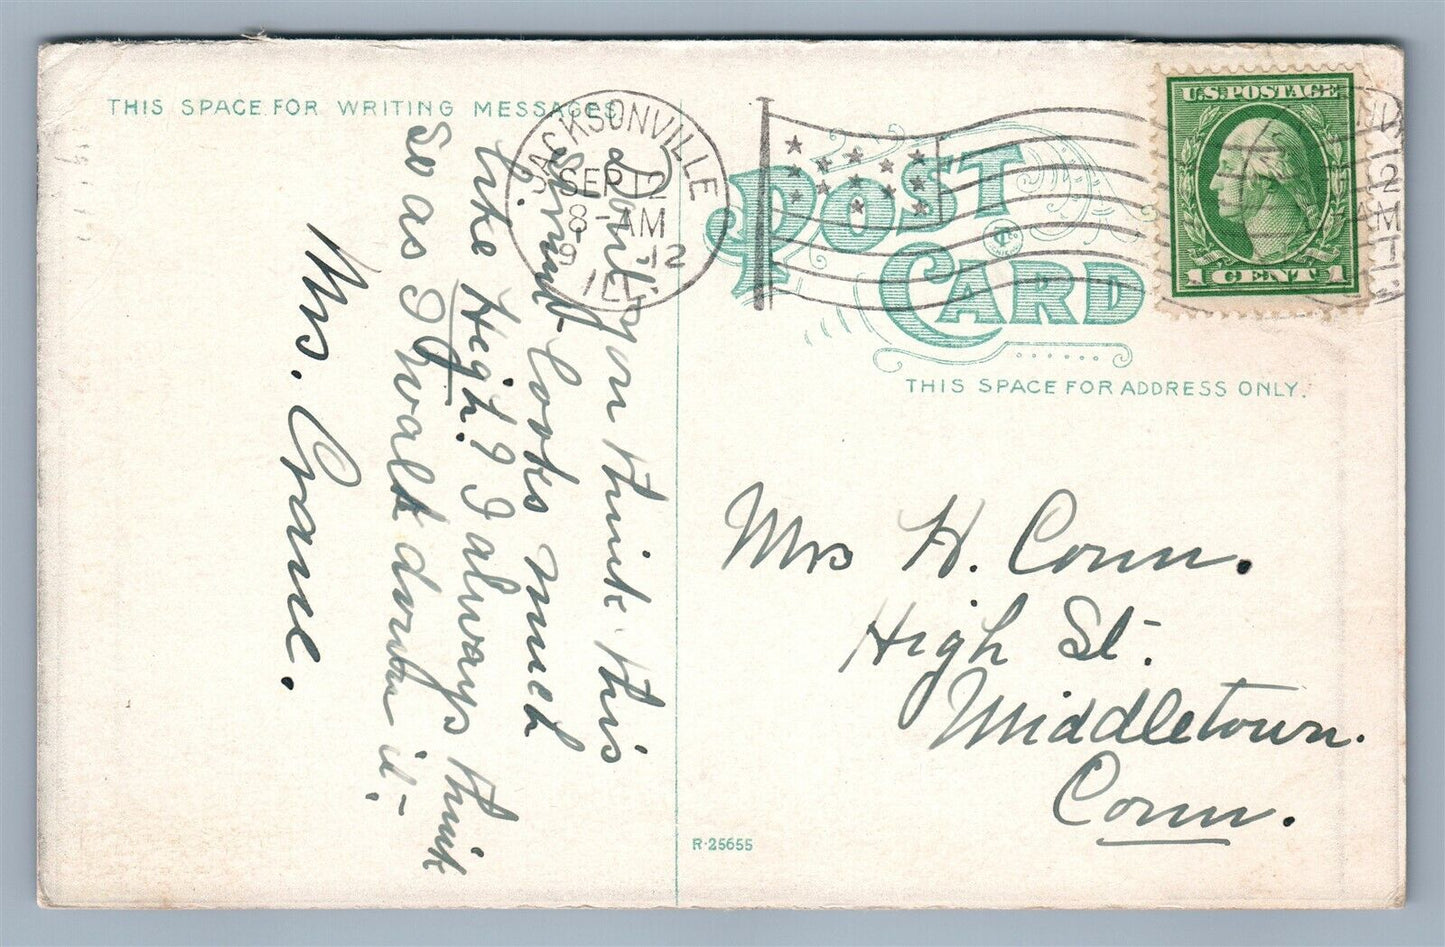 THIS SPACE FOR WRITING MESSAGES
Don't you think this
street looks much
like High? I always think
so as I walk down it.-
Mrs. Crane.
JACKSONVILLE
SEP 12
8-AM
1912
ILL
POST
CARD
U.S. POSTAGE
1 CENT 1
THIS SPACE FOR ADDRESS ONLY.
Mrs H. Conn.
High St.
Middletown.
Conn.
R-25655